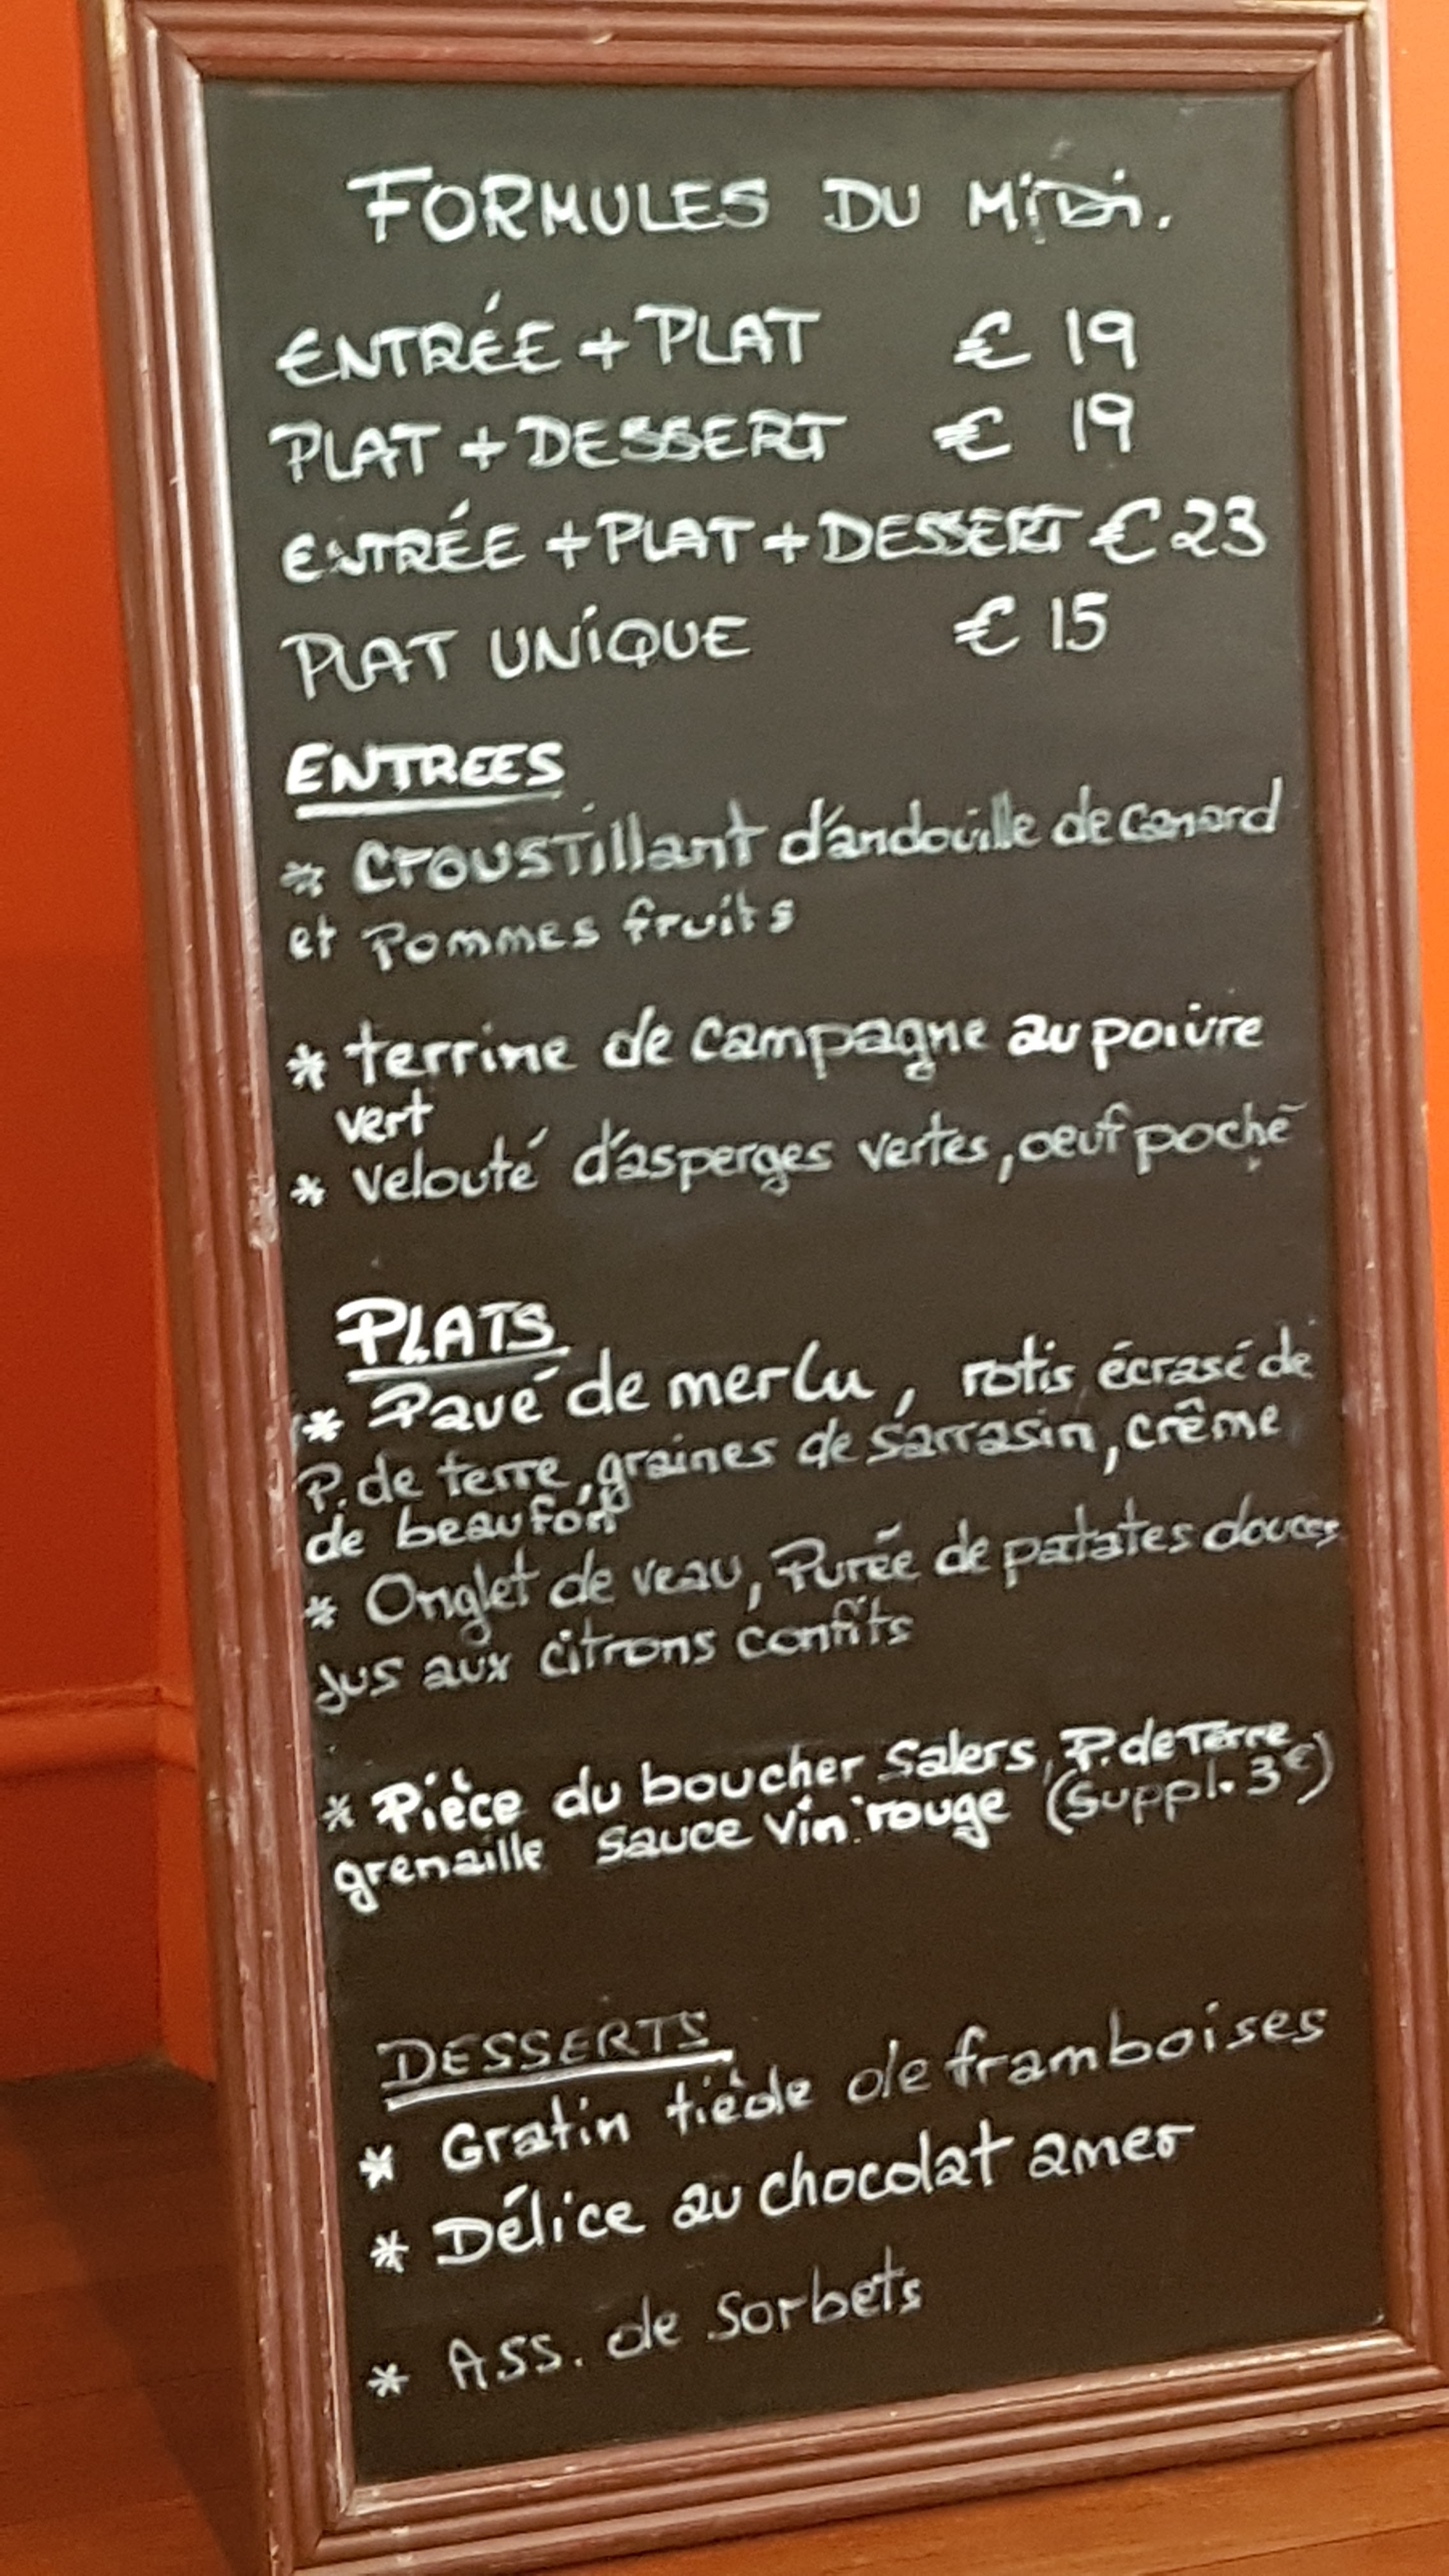 FORMULES DU MiDi.
ENTRÉE + PLAT € 19
PLAT + DESSERT € 19
ENTRÉE + PLAT + DESSERT € 23
PLAT UNiQUE € 15
ENTREES
* CroUSTillant d'andouille de canard
et Pommes fruits
* terrine de campagne au poivre
vert
* velouté d'asperges vertes, oeuf poché
PLATS
* Pavé de merlu, rotis écrasé de
P. de terre, graines de sarrasin, crême
de beaufort
* Onglet de veau, Purée de patates douces
Jus aux citrons confits
* Pièce du boucher Salers, P. de Terre
grenaille sauce vin rouge (Suppl. 3€)
DESSERTS
* Gratin tiède de framboises
* Délice au chocolat amer
* Ass. de Sorbets